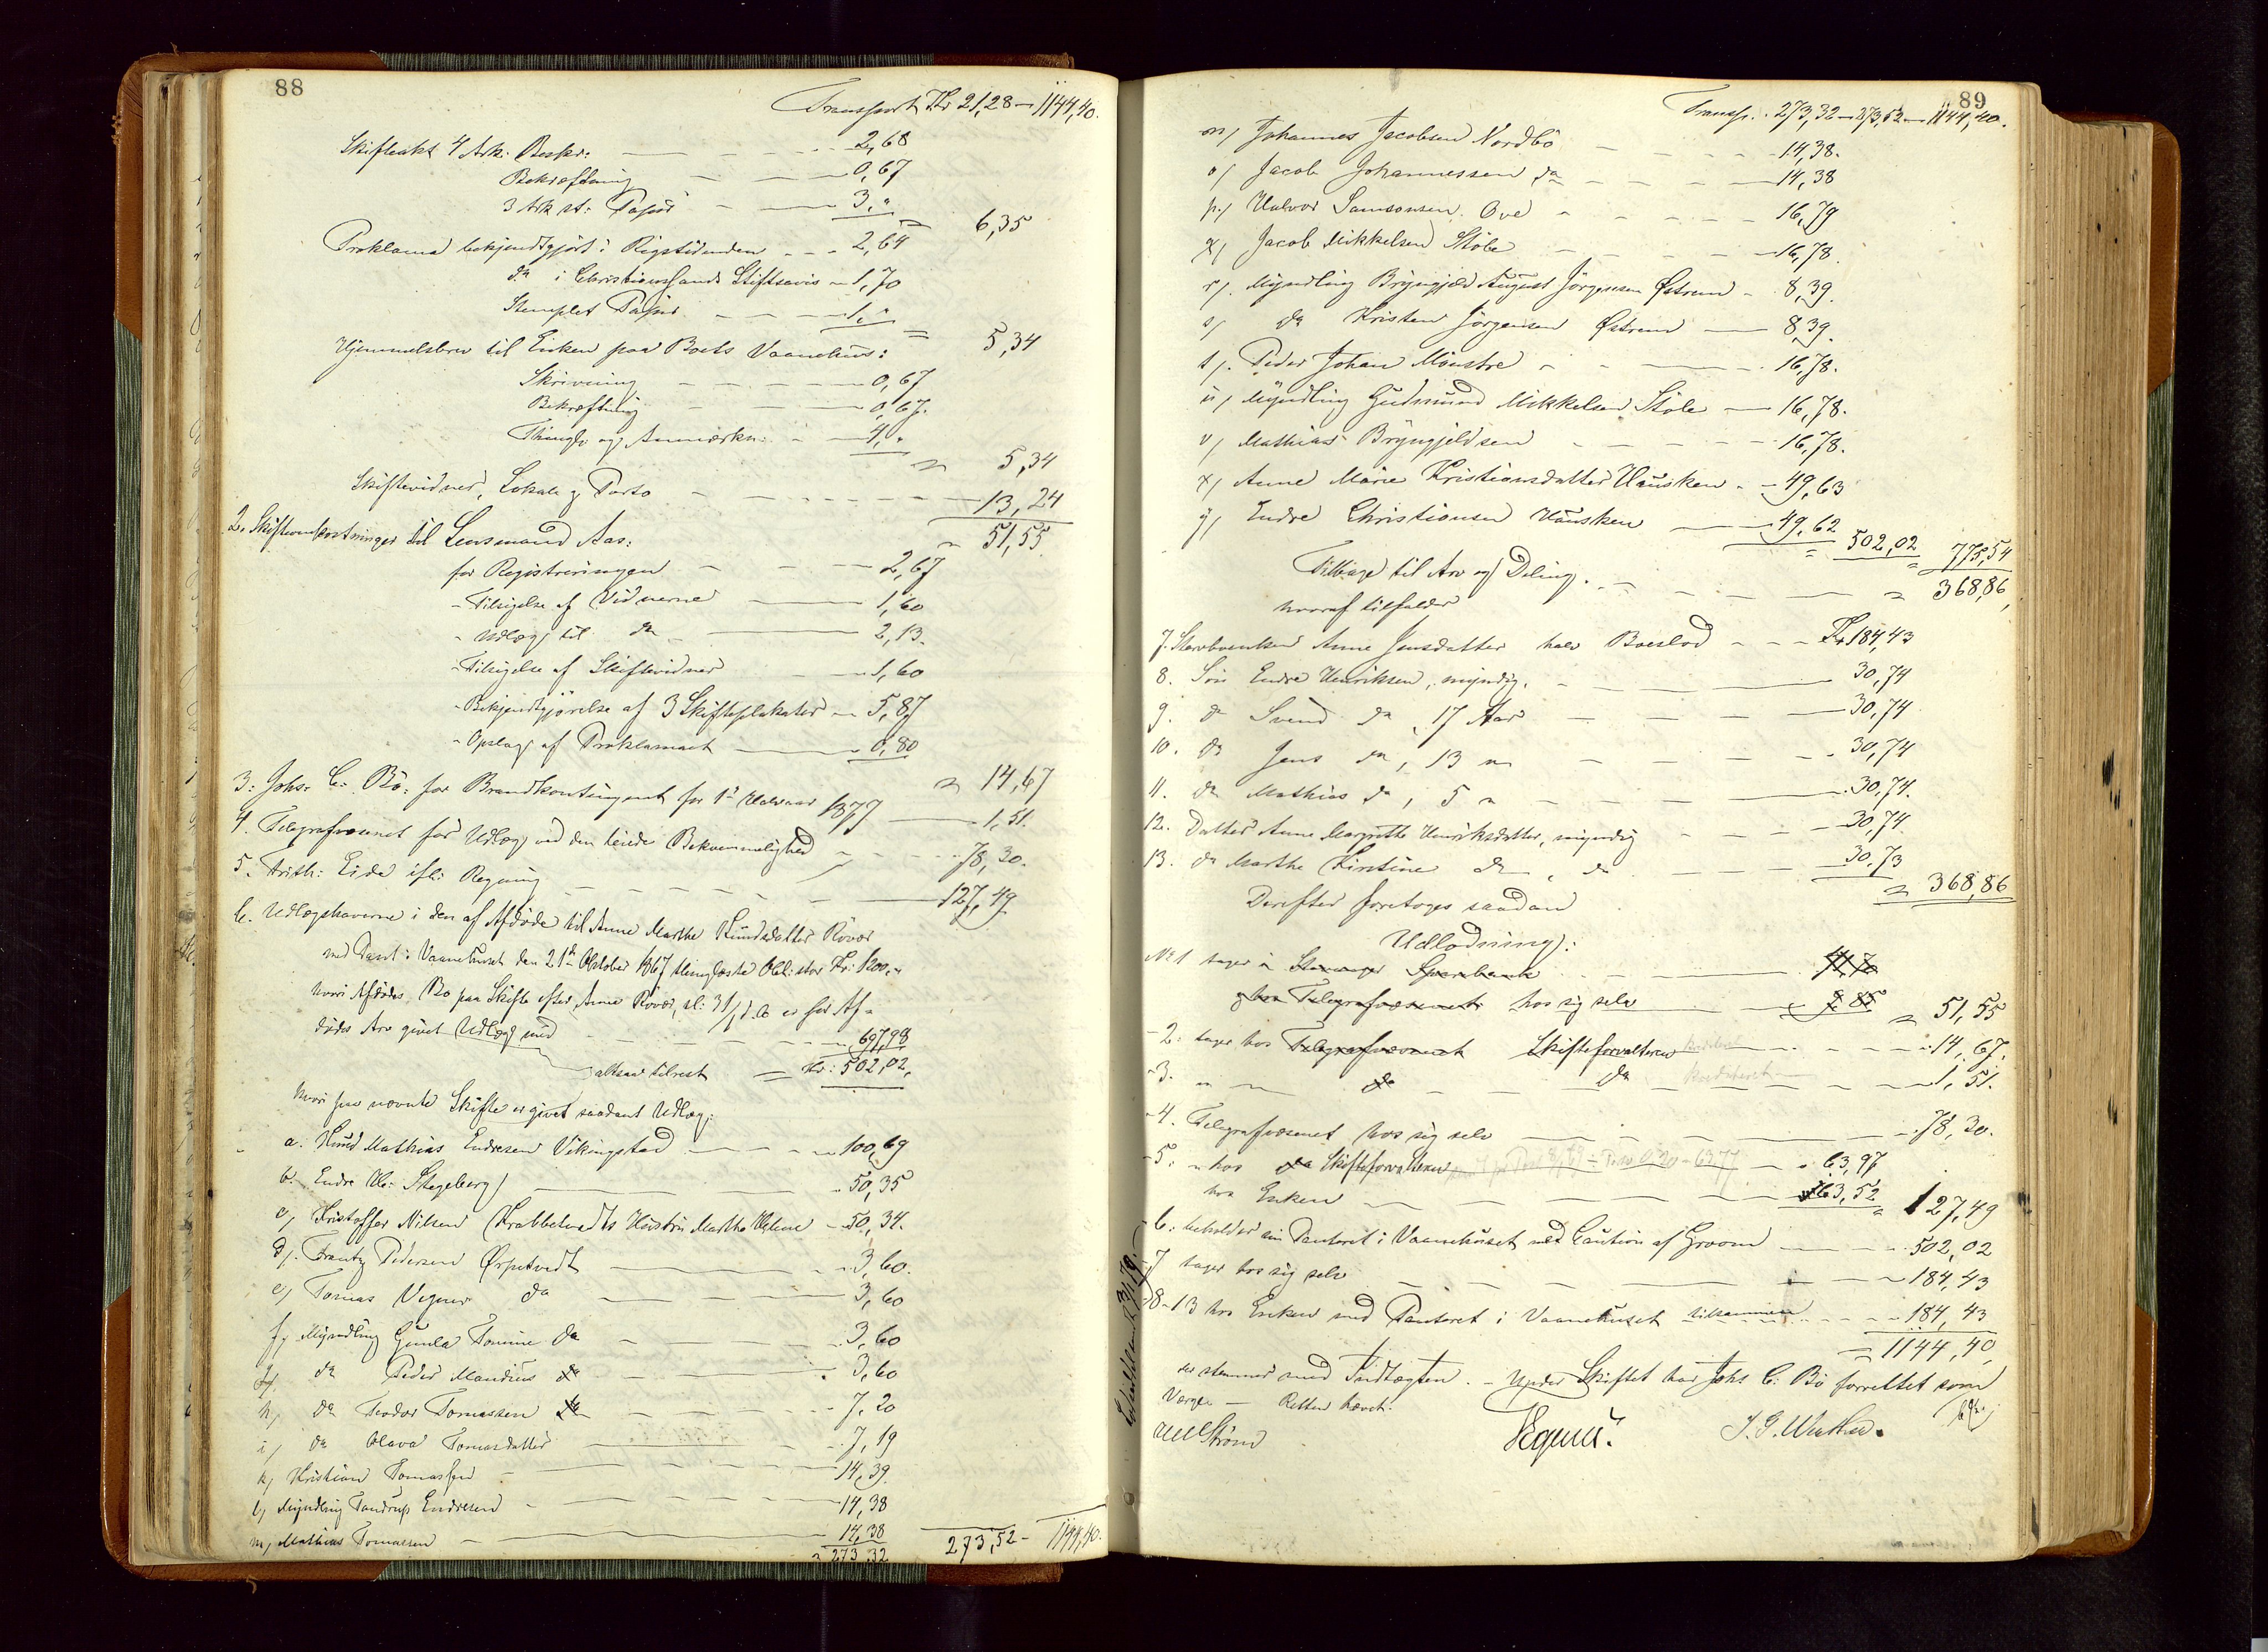 88
Transport Kr 21,28 — 1144,40.
Skifteakt 4 Ark: Beskr: — 2,68
Bekræftning — 0,67
3 Ark st: Papir — 3,"
6,35
Proklama bekjendtgjort i Rigstidenden — 2,64
do i Christianssands Stiftsavis — 1,70
Stemplet Papir — 1,"
5,34
Hjemmelsbrev til Enken paa Boets Vaanehus:
Skrivning — 0,67
Bekræftning — 0,67.
Thingl. og Anmærkn: — 4,"
" 5,34
Skiftevidner, Lokale & Porto — 13,24
" 51,55
2. Skifteomkostninger til Lensmand Aas:
for Registreringen — 2,67
- Tilsigelse af Vidnerne — 1,60
- Udlæg til do — 2,13.
- Tilsigelse af Skiftevidner — 1,60
- Bekjendtgjørelse af 3 Skifteplakater — 5,87
- Opslag af Proklamaet — 0,80
" 14,67
3: Johs. C. Bø: for Brandkontingent for 1ste Halvaar 1877 — 1,51.
4. Telegrafvæsenet for Udlæg ved den leiede Bekvemmelighed — 78,30.
5. Frith: Eide ifl: Regning — 127,49
6. Udlægshaverne i den af Afdøde til Anne Marthe Knudsdatter Røvær
med Pant i Vaanehuset den 21de Oktober 1867 thinglæste Obl: stor Kr: 1200,"
hvori Afdødes Bo paa Skifte efter Anne Røvær, sl: 31/1 d. A. er for Af-
dødes Arv givet Udlæg med — 697,98
altsaa tilrest = Kr: 502,02,
hvori paa nævnte Skifte er givet saadant Udlæg:
a. Knud Mathias Endresen Vikingstad — 100,69
b. Endre Ths: Skegeberg — 50,35
c, Kristoffer Nilsen Krabbetvedts Hustru Marthe Helene — 50,34.
d). Frantz Pedersen Ørpetvedt — 3,60.
e, Tomas Vegner do — 3,60
f, Myndling Gunla Tomine do — 3,60
g, do Peder Mandius do — 3,60
h, do Teodor Tomassen do — 7,20
i, do Olava Tomasdatter — 7,19
k, Kristian Tomassen — 14,39
l, Myndling Tandrup Endresen — 14,38
m, Mathias Tomassen — 14,38
" 273,32 273,52 — 1144,40.
89
Transp. 273,32 — 273,52 — 1144,40.
n, Johannes Jacobsen Nordbö — 14,38.
o, Jacob Johannessen do — 14,38
p, Halvor Samsonsen Ove — 16,79
q, Jacob Mikkelsen Støle — 16,78.
r, Myndling Bryngjeld August Jörgensen Østrem — 8,39.
s, do Kristen Jörgensen Østrem — 8,39.
t, Peder Johan Mönstre — 16,78.
u, Myndling Gudmund Mikkelsen Støle — 16,78.
v, Mathias Bryngjeldsen — 16,78.
x, Anne Marie Kristiansdatter Hausken — 49,63
y, Endre Christiansen Hausken — 49,62
" 502,02 " 775,54
Tilbage til Arv og Deling — " 368,86,
hvoraf tilfalder
7. Stervboenken Anne Jensdatter halv Boeslod — Kr 184,43
8. Sön Endre Henriksen, myndig. — 30,74
9. do Svend do, 17 Aar — 30,74
10. do Jens do, 13 " — 30,74
11. do Mathias do, 5 " — 30,74.
12. Datter Anne Margrethe Henriksdatter, myndig — 30,74
13. do Marthe Kirstine do, do — 30,73
" 368,86
Derefter foretoges saadan
Udlodning:
No 1 tager i Stavanger Sparebank
og hos Telegrafvæsenet hos sig selv — " 51,55
- 2: tager hos Telegrafvæsenet Skifteforvalteren — 14,67.
- 3. " " do do — 1,51.
- 4. Telegrafvæsenet hos sig selv — 78,30.
- 5: " hos do Skifteforvalteren — 63,97
hos Enken — 63,52 " 127,49
- 6: beholder sin Panteret i Vaanehuset med Caution af Groom — 502,02
- 7 tager hos sig selv — 184,43
- 8-13 hos Enken med Panteret i Vaanehuset tilsammen — 184,43
= 1144,40,
der stemmer med Indtægten. — Under Skiftet har Johs C: Bö forrettet som
Værge — Retten hævet.
Strøm
Vegner.